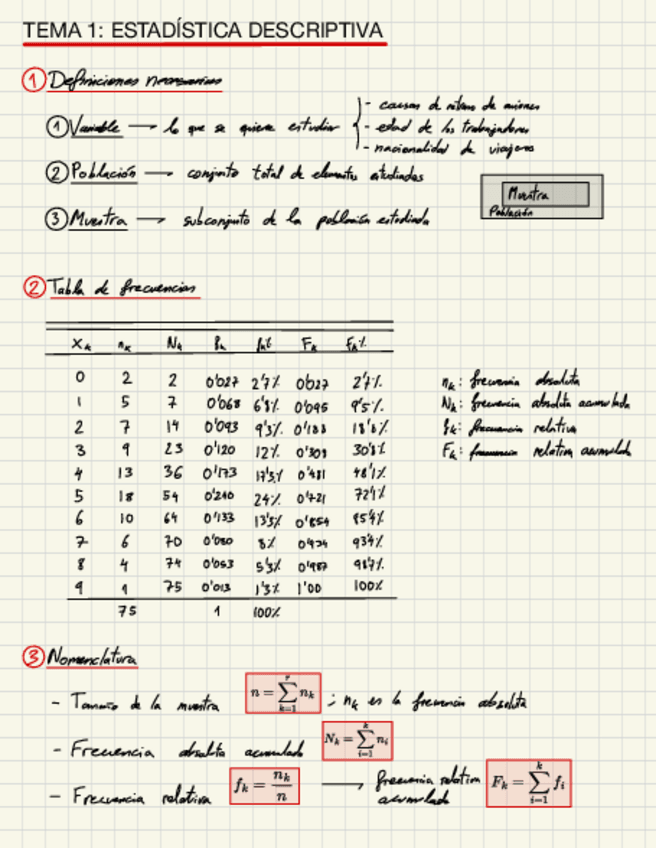 TEMA 1: ESTADÍSTICA DESCRIPTIVA
① Definiciones necesarias
① Variable → lo que se quiere estudiar { - causas de retraso de aviones
- edad de los trabajadores
- nacionalidad de viajeros
② Población → conjunto total de elementos estudiados
Muestra
Población
③ Muestra → subconjunto de la población estudiada
② Tabla de frecuencias
Xₖ nₖ Nₖ fₖ fₖ% Fₖ Fₖ%
0 2 2 0'027 2'7% 0'027 2'7%
1 5 7 0'068 6'8% 0'095 9'5%
2 7 14 0'093 9'3% 0'188 18'8%
3 9 23 0'120 12% 0'308 30'8%
4 13 36 0'173 17'3% 0'481 48'1%
5 18 54 0'240 24% 0'721 72'1%
6 10 64 0'133 13'3% 0'854 85'4%
7 6 70 0'080 8% 0'934 93'4%
8 4 74 0'053 5'3% 0'987 98'7%
9 1 75 0'013 1'3% 1'00 100%
75 1 100%
nₖ: frecuencia absoluta
Nₖ: frecuencia absoluta acumulada
fₖ: frecuencia relativa
Fₖ: frecuencia relativa acumulada
③ Nomenclatura
- Tamaño de la muestra n = ∑_{k=1}^{r} nₖ ; nₖ es la frecuencia absoluta
- Frecuencia absoluta acumulada Nₖ = ∑_{i=1}^{k} nᵢ
- Frecuencia relativa fₖ = nₖ/n → frecuencia relativa acumulada Fₖ = ∑_{i=1}^{k} fᵢ